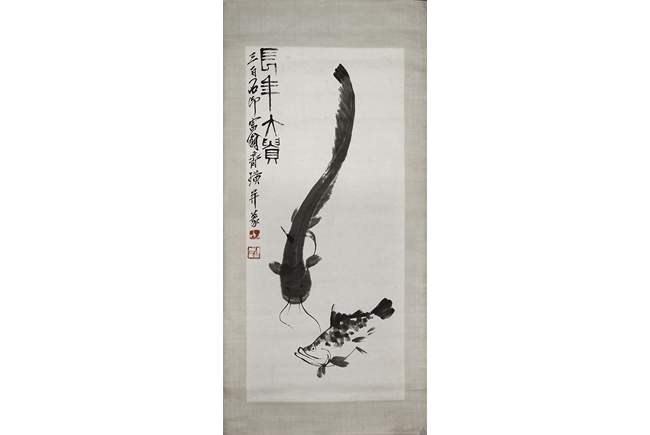 長年大貴
三百石印富翁齊璜并篆